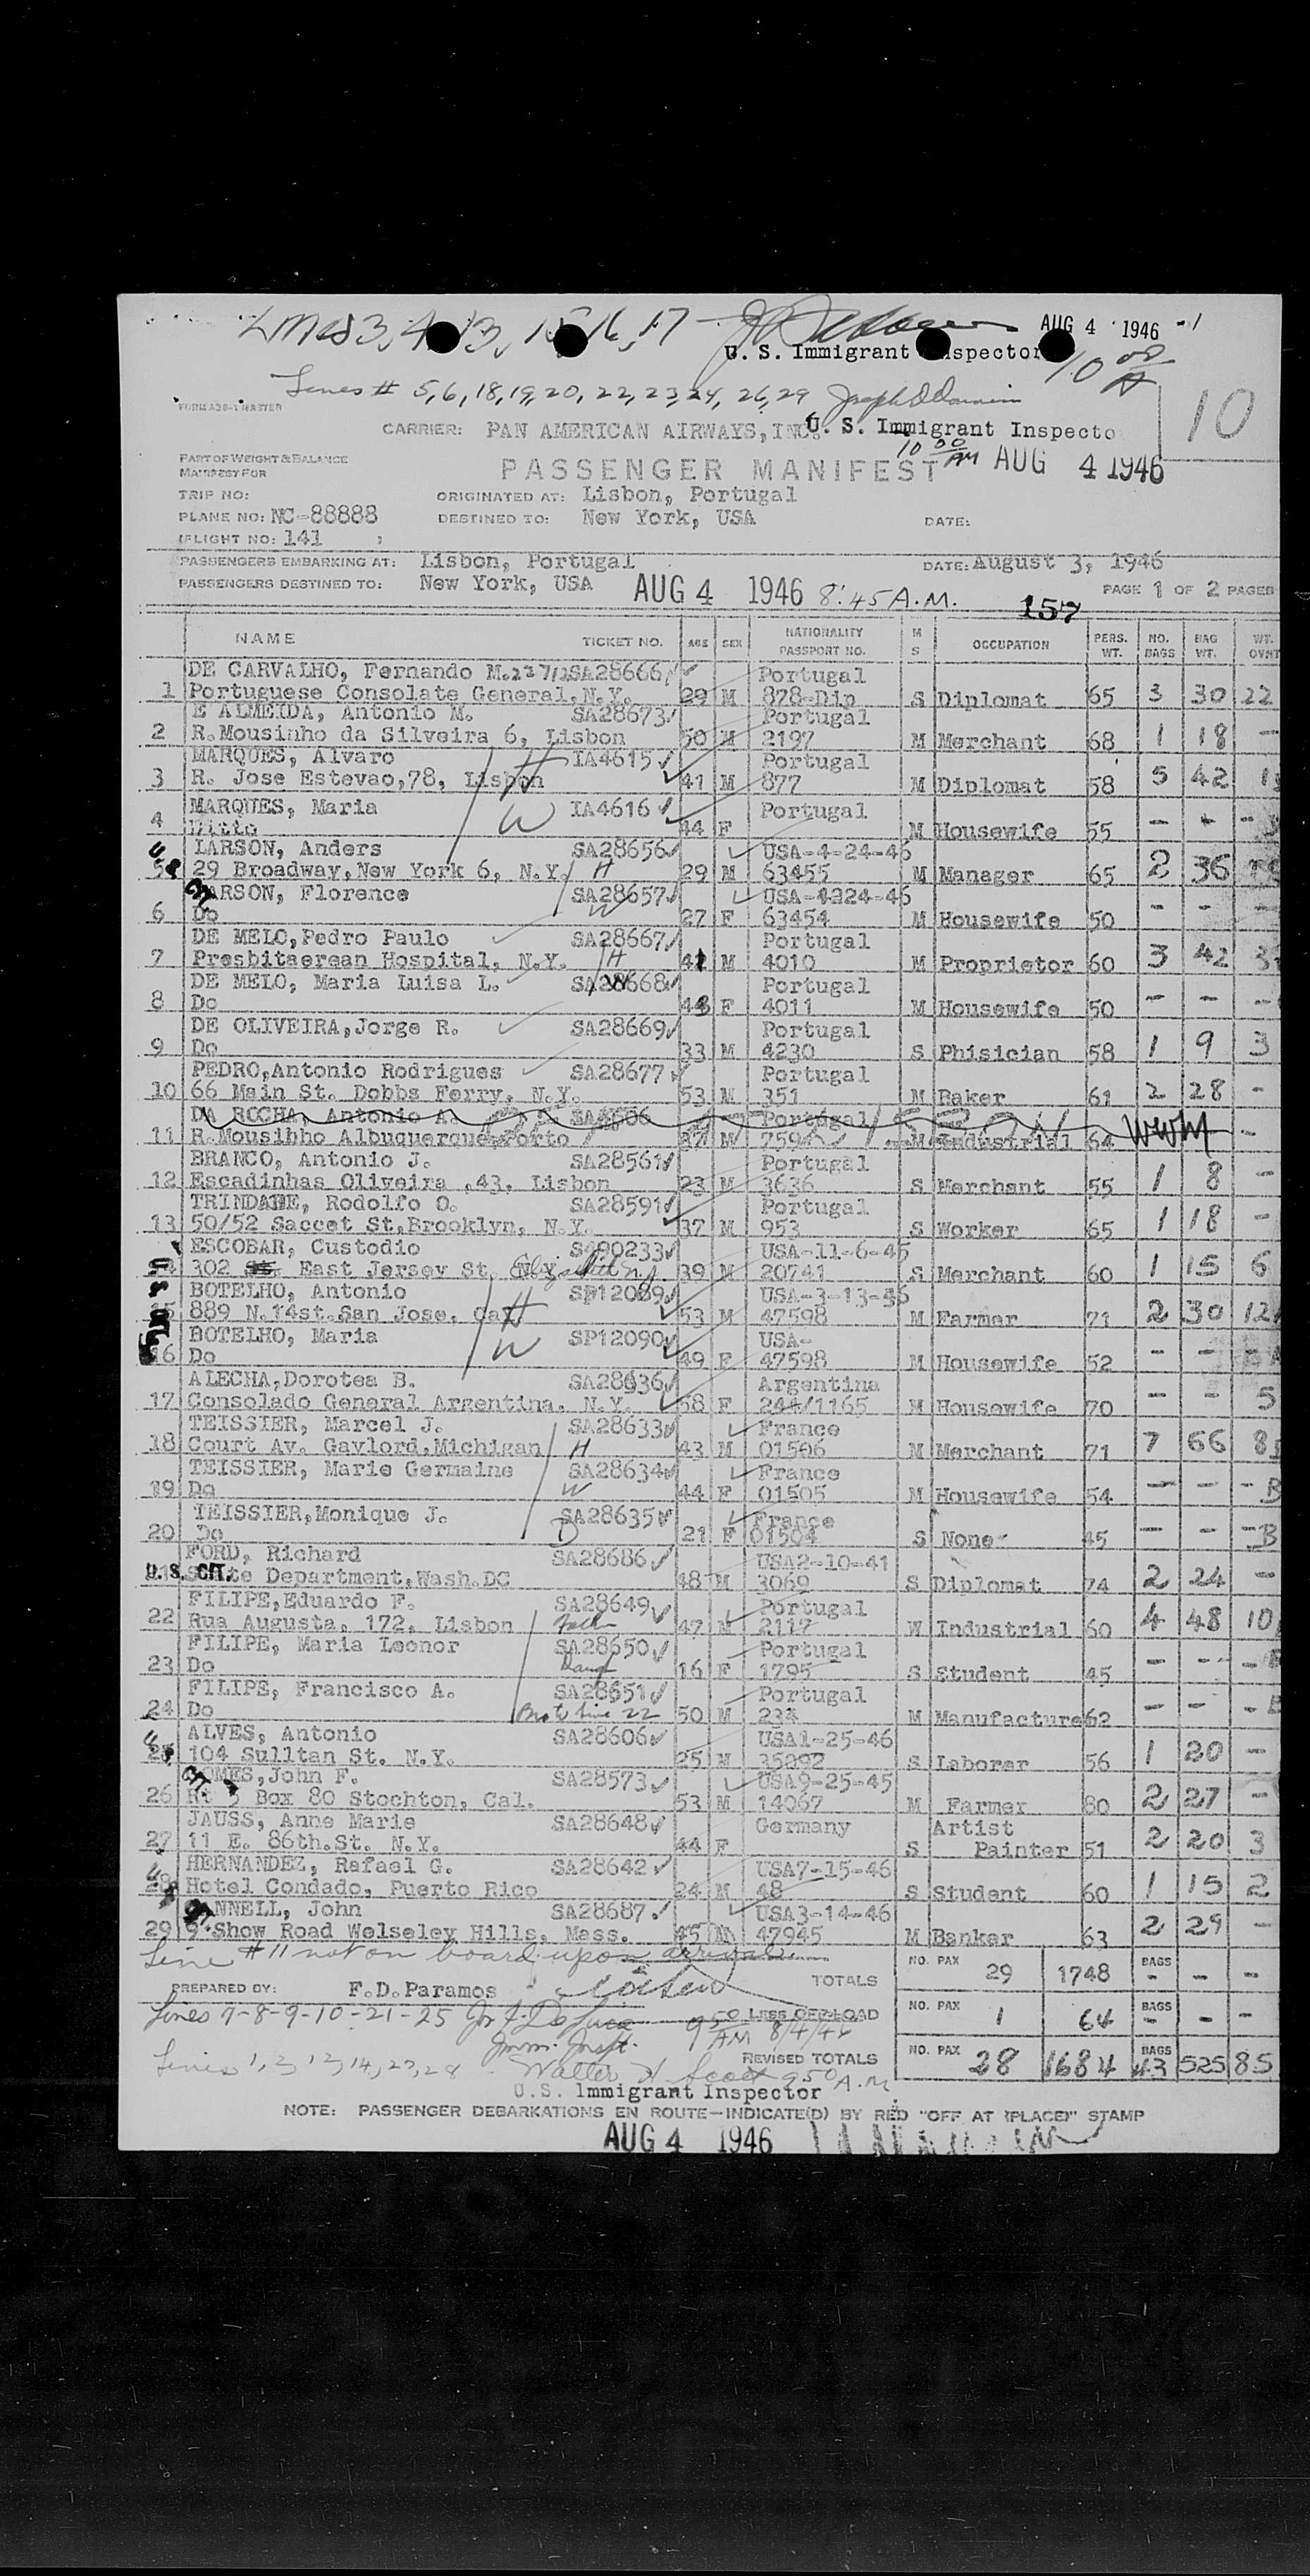 Lines 3, 4, 13, 15, 16, 17
AUG 4 1946
U. S. Immigrant Inspector
10 00 A
Lines # 5, 6, 18, 19, 20, 22, 23, 24, 26, 29
10
CARRIER: PAN AMERICAN AIRWAYS, INC.
U. S. Immigrant Inspecto
PART OF WEIGHT & BALANCE
MANIFEST FOR
PASSENGER MANIFEST
10 00 AM AUG 4 1946
TRIP NO: ORIGINATED AT: Lisbon, Portugal
PLANE NO: NC-88888 DESTINED TO: New York, USA DATE:
FLIGHT NO: 141
PASSENGERS EMBARKING AT: Lisbon, Portugal DATE: August 3, 1946
PASSENGERS DESTINED TO: New York, USA AUG 4 1946 8:45 A.M. 157 PAGE 1 OF 2 PAGES
NAME TICKET NO. AGE SEX NATIONALITY PASSPORT NO. M S OCCUPATION PERS. WT. NO. BAGS BAG WT. WT. OVWT
DE CARVALHO, Fernando M. SA28666 Portugal
1 Portuguese Consolate General, N.Y. 29 M 878-Dip S Diplomat 65 3 30 22
E ALMEIDA, Antonio M. SA28673 Portugal
2 R. Mousinho da Silveira 6, Lisbon 50 M 2197 M Merchant 68 1 18 -
MARQUES, Alvaro H IA4615 Portugal
3 R. Jose Estevao, 78, Lisbon 41 M 877 M Diplomat 58 5 42
MARQUES, Maria W IA4616 Portugal
4 Ditto 44 F M Housewife 55 - - -
LARSON, Anders SA28656 USA-4-24-46
5 29 Broadway, New York 6, N.Y. H 29 M 63455 M Manager 65 2 36
LARSON, Florence SA28657 USA-4324-46
6 Do W 27 F 63454 M Housewife 50 - - -
DE MELO, Pedro Paulo SA28667 Portugal
7 Presbitaerean Hospital, N.Y. H M 4010 M Proprietor 60 3 42
DE MELO, Maria Luisa L. W SA28668 Portugal
8 Do F 4011 M Housewife 50 - - -
DE OLIVEIRA, Jorge R. SA28669 Portugal
9 Do 33 M 4230 S Phisician 58 1 9 3
PEDRO, Antonio Rodrigues SA28677 Portugal
10 66 Main St. Dobbs Ferry, N.Y. 53 M 351 M Baker 61 2 28 -
DA ROCHA, Antonio A. Portugal
11 R. Mousibho Albuquerque, Porto 37 M 759 M Industrial 64 WWM -
BRANCO, Antonio J. SA28561 Portugal
12 Escadinhas Oliveira ,43, Lisbon 23 M 3636 S Merchant 55 1 8 -
TRINDADE, Rodolfo O. SA28591 Portugal
13 50/52 Saccet St, Brooklyn, N.Y. 37 M 953 S Worker 65 1 18 -
ESCOBAR, Custodio S490233 USA-11-6-45
302 East Jersey St. N.Y. Elizabeth N.J. 39 M 20741 S Merchant 60 1 15 6
BOTELHO, Antonio SP12089 USA-3-13-
15 889 N.14st. San Jose, Cal H 53 M 47598 M Farmer 71 2 30 12
BOTELHO, Maria SP12090 USA-
16 Do W 49 F 47598 M Housewife 52 - - -
ALECHA, Dorotea B. SA28636 Argentina
17 Consolado General Argentina, N.Y. 58 F 244/1165 M Housewife 70 - - 5
TEISSIER, Marcel J. SA28633 France
18 Court Av. Gaylord, Michigan H 43 M 01506 M Merchant 71 7 66 8
TEISSIER, Marie Germaine SA28634 France
19 Do W 44 F 01505 M Housewife 54 - - -
TEISSIER, Monique J. SA28635 France
20 Do D 21 F 01504 S None 45 - - -
FORD, Richard SA28686 USA2-10-41
U.S. CIT. State Department, Wash. DC 48 M 3069 S Diplomat 74 2 24 -
FILIPE, Eduardo F. SA28649 Portugal
22 Rua Augusta, 172, Lisbon Fath 47 M 2117 W Industrial 60 4 48 10
FILIPE, Maria Leonor SA28650 Portugal
23 Do Daug 16 F 1795 S Student 45 - - -
FILIPE, Francisco A. SA28651 Portugal
24 Do Bro to line 22 50 M M Manufacture 62 - - -
ALVES, Antonio SA28606 USA1-25-46
25 104 Sulltan St. N.Y. 25 M 35092 S Laborer 56 1 20 -
GOMES, John F. SA28573 USA9-25-45
26 Rt 3 Box 80 Stochton, Cal. 53 M 14067 M Farmer 80 2 27 -
JAUSS, Anne Marie SA28648 Germany Artist
27 11 E. 86th.St. N.Y. 44 F S Painter 51 2 20 3
HERNANDEZ, Rafael G. SA28642 USA7-15-46
28 Hotel Condado, Puerto Rico 24 M 48 S Student 60 1 15 2
NNELL, John SA28687 USA3-14-46
29 9 Show Road Welseley Hills, Mass. 45 M 47945 M Banker 63 2 29 -
Line #11 not on board upon arrival
TOTALS NO. PAX 29 1748 BAGS - - -
PREPARED BY: F.D.Paramos
LESS OFF-LOAD NO. PAX 1 64 BAGS - - -
Lines 7-8-9-10-21-25 9 50 AM 8/4/46
Imm. Inspt.
REVISED TOTALS NO. PAX 28 1684 BAGS 43 525 85
Walter 9 50 A.M
U.S. Immigrant Inspector
NOTE: PASSENGER DEBARKATIONS EN ROUTE—INDICATE(D) BY RED "OFF AT (PLACE)" STAMP
AUG 4 1946